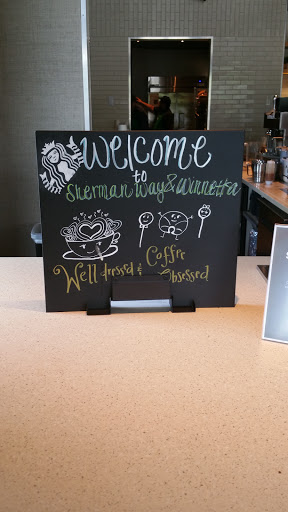 Welcome
to
Sherman Way & Winnetka
Well dressed & Coffee Obsessed